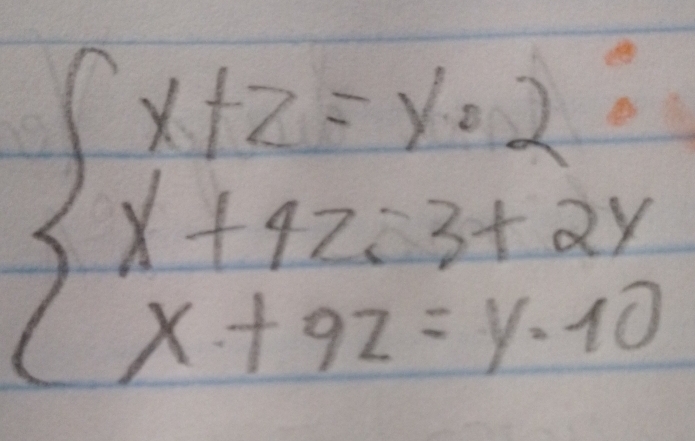 x+z=y·2
x+4z=3+2y
x+9z=y·10